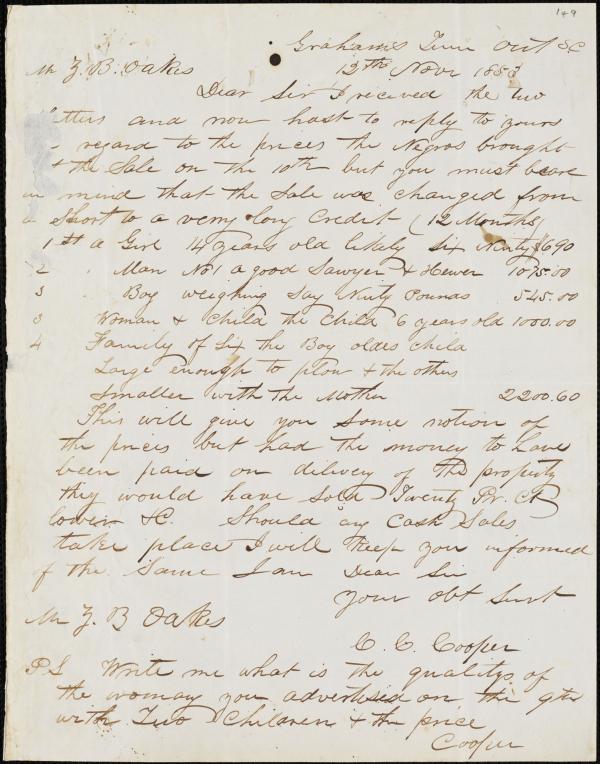 149
Grahams Turn Out SC
Mr Z. B. Oakes 12th Novr 1853
Dear Sir I recieved the two
and now hast to reply to yours
regard to the prices the Negros brought
the Sale on the 10th but you must beare
in mind that the Sale was changed from
a Short to a verry long Credit (12 Months)
1st a Girl 14 years old likely Six Ninty $690
2 " Man No 1 a good Sawyer & Hewer 1075.00
3 " Boy weighing Say Ninty Pounds 545.00
3 Woman & Child the Child 6 years old 1000.00
4 Family of Six the Boy oldes child
Large enough to plow & the others
Smaller with the Mother 2200.60
This will give you Some notion of
the prices but had the money to have
been paid on delivey of the property
they would have Sold Twenty Pr. Ct
lower &C. Should any Cash Sales
take place I will keep you informed
of the Same I am Dear Sir
Your Obt Servt
Mr Z B Oakes
C. C. Cooper
PS Write me what is the qualitys of
the woman you advertised on the 9th
with Two Children & the price
Cooper